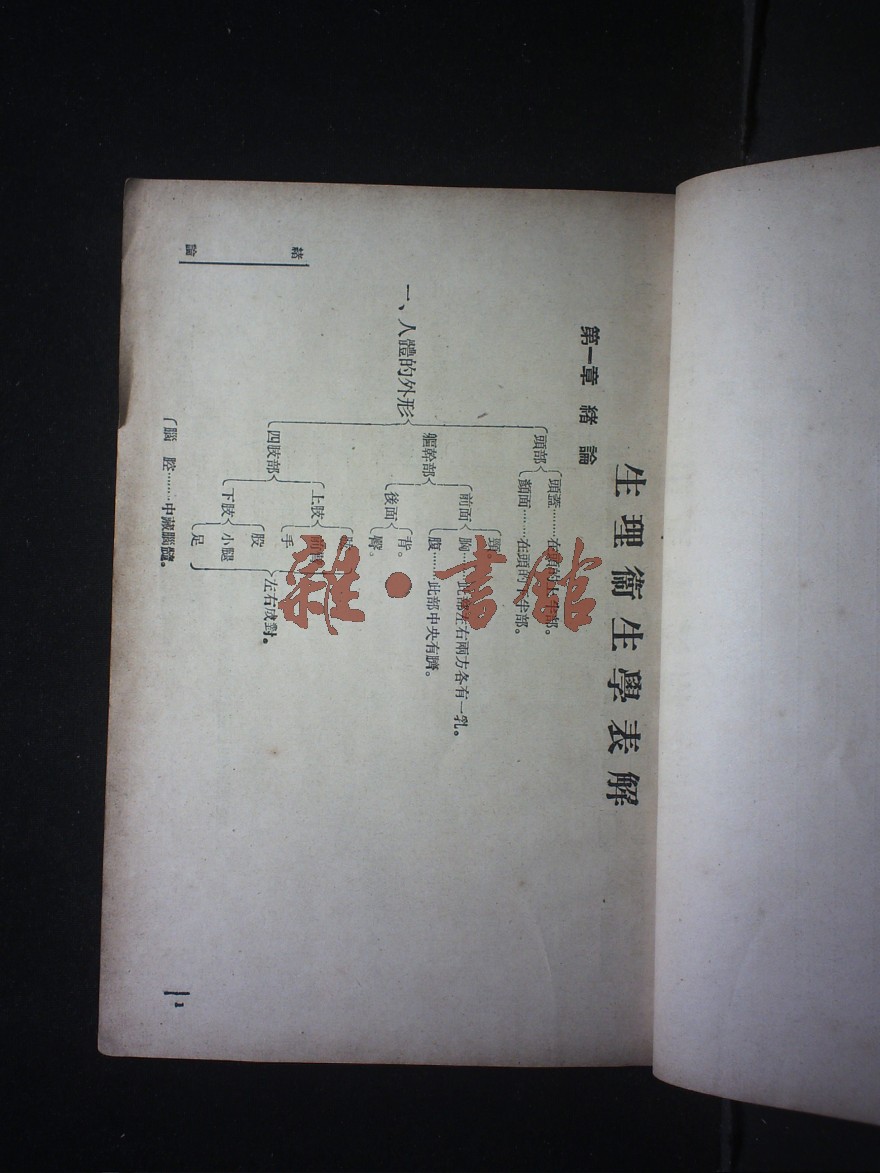 生理衞生學表解
第一章 緒論
一、人體的外形
頭部
頭蓋……在頭的上半部。
顏面……在頭的下半部。
軀幹部
前面
頸
胸……此部左右兩方各有一乳。
腹……此部中央有臍。
後面
背。
臀。
四肢部
上肢
手
下肢
股
小腿
足
左右成對。
腦 腔……中藏腦髓。
緒論
1
雜·書館